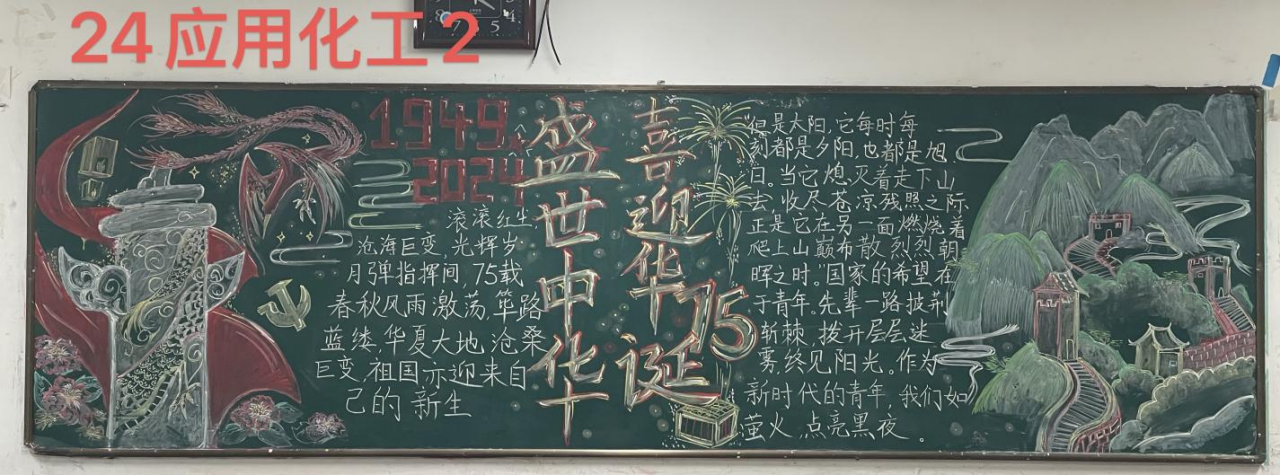 24应用化工2
1949
2024
盛世中华
喜迎华诞
75
滚滚红尘
沧海巨变,光辉岁
月弹指挥间,75载
春秋风雨激荡,筚路
蓝缕,华夏大地沧桑
巨变,祖国亦迎来自
己的新生
但是太阳,它每时每
刻都是夕阳,也都是旭
日。当它熄灭着走下山
去,收尽苍凉残照之际,
正是它在另一面燃烧着
爬上山巅布散烈烈朝
晖之时。"国家的希望在
于青年,先辈一路披荆
斩棘,拨开层层迷
雾,终见阳光。作为
新时代的青年,我们如
萤火,点亮黑夜。